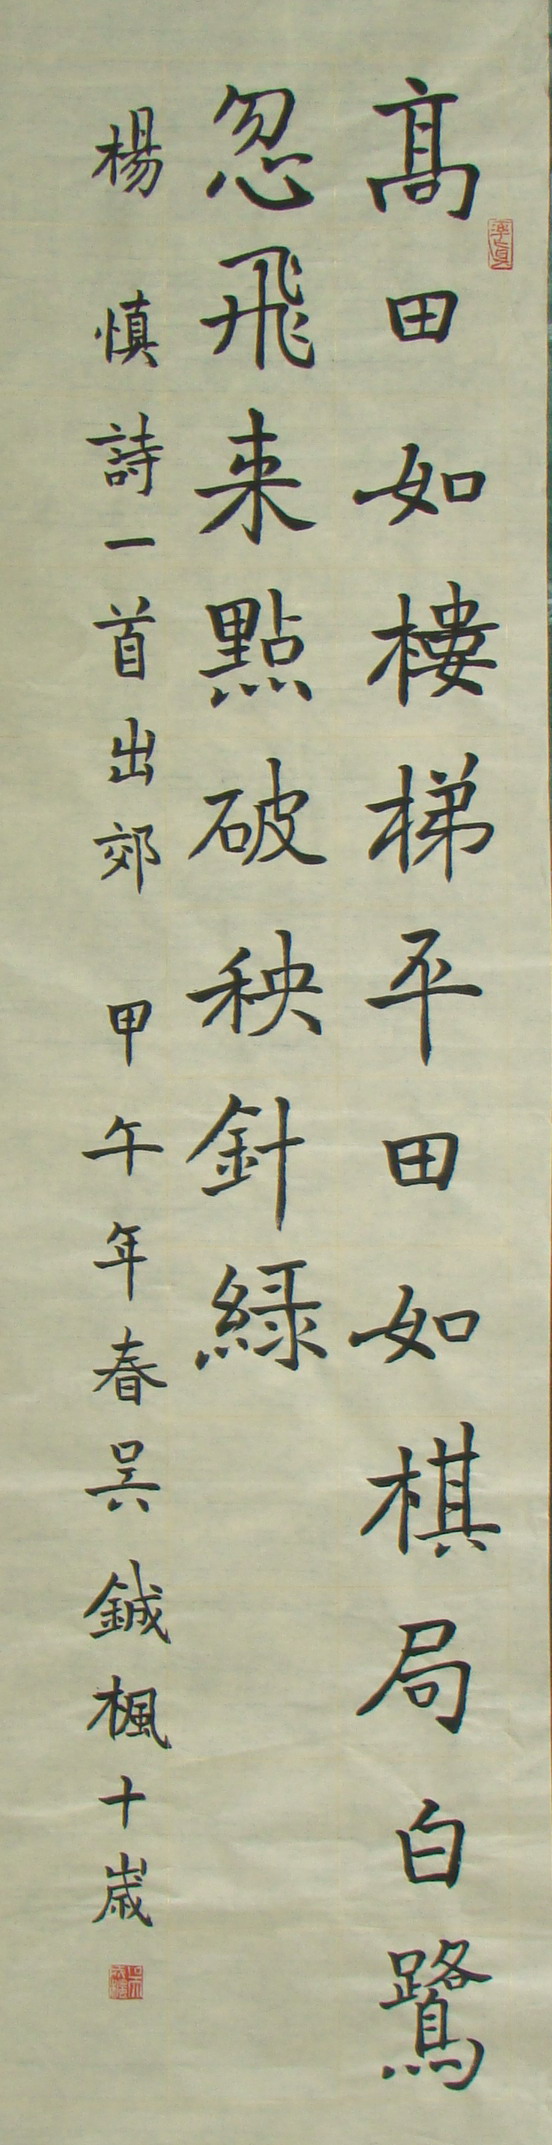 髙田如樓梯平田如棋局白鷺
忽飛来點破秧針綠
楊慎詩一首出郊 甲午年春吴鋮楓十歲
率真